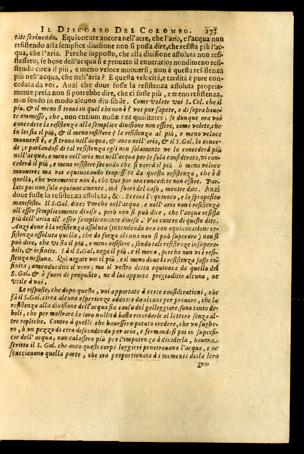 IL DISCORSO DEL COLOMBO. 173
tità scrivendo. Equivocate ancora nell'acre, che l'aria, e l'acqua non
resistendo alla semplice divisione non si possa dire, che resista più l'ac-
qua, che l'aria. Perche supposto, che alla divisione assoluta non resi-
stessero, se bene dell'acqua si è provato il contrario: nondimeno resi-
stendo circa il più, e meno veloce muoversi, non è questa resistenza
più nell'acqua, che nell'aria? E questa velocità, e tardità è pure con-
ceduta da voi. Anzi che dove fosse la resistenza assoluta propria-
mente presa non si potrebbe dire, che ci fosse più, e meno resistenza,
non sendo in modo alcuno divisibile. Come volete voi S. Col. che il
più, & il meno si trovi in quel che non è? voi pur sapete, e di sopra have-
te ammesso, che, non entium nullæ sunt qualitates; se dunque ora voi
concedete la resistenza alla semplice divisione non essere, come volete, che
in lei sia il più, & il meno resistere? la resistenza al più, e meno veloce
muoversi è, e si trova nell'acqua, e meno nell'aria, & il S. Gal. la conce-
de; e parlando di tal resistenza egli non solamente ve la concederà più
nell'acqua, e meno nell'aria, ma nell'acqua non pur le sarà conceduta, vi con-
cederà il più, e meno resistere secondo che si vorrà il più, ò meno veloce
muovere: ma voi equivocando trapassate da questa resistenza, che è à
quella, che veramente non è, e'l voi pur ora concedete non essere. Par-
late poi non solo equivocamente, mà fuori del caso, mentre dite. Anzi
dove fosse la resistenza assoluta, &c. Eccoui l'equivoco, e lo sproposito
manifesto. Il S. Gal. dice: Perche nell'acqua, e nell'aria non è resistenza
all'esser semplicemente divise, però non si può dire, che l'acqua resista
più dell'aria all'essere semplicemente divisa. Voi contro di questo dite.
Anzi dove è la resistenza assoluta (intendendo ora con equivocazione re-
sistenza assoluta quella, che da forza alcuna non si può superare) non si
può dire, che vi sia il più, e meno resistere, sendo tale resistenza insupera-
bile, & infinita. Là il S. Gal. nega il più, e il meno, perche non vi è resi-
stenza nessuna. Quì negate voi il più, e il meno dove la resistenza fosse in-
finita; amendue dite il vero; ma il vostro detto equivoca da quello del
S. Gal. & è fuori di proposito, nè à lui apporta pregiudizio alcuno, nè
utile à voi.
Le risposte, che dopo questo, voi apportate à certe considerazioni, che
fà il S. Gal. circa alcune esperienze addotte da alcuni per provare, che la
resistenza alla divisione dell'acqua sia causa del galleggiare, sono tanto de-
boli, che per mostrare la loro nullità basta ricordarle al lettore senza al-
tre repliche. Contro à quelli, che havessero potuto credere, che un sughe-
ro, ò un pezzo di cera discendendo per aria, e fermandosi poi in superfi-
cie dell'acqua, non calassero più per l'impotenza à dividerla, haveva
scritto il S. Gal. che anco questi corpi leggieri penetravano l'acqua, e ne
scacciavano quella parte, che era proporzionata à i momenti della loro
gra-